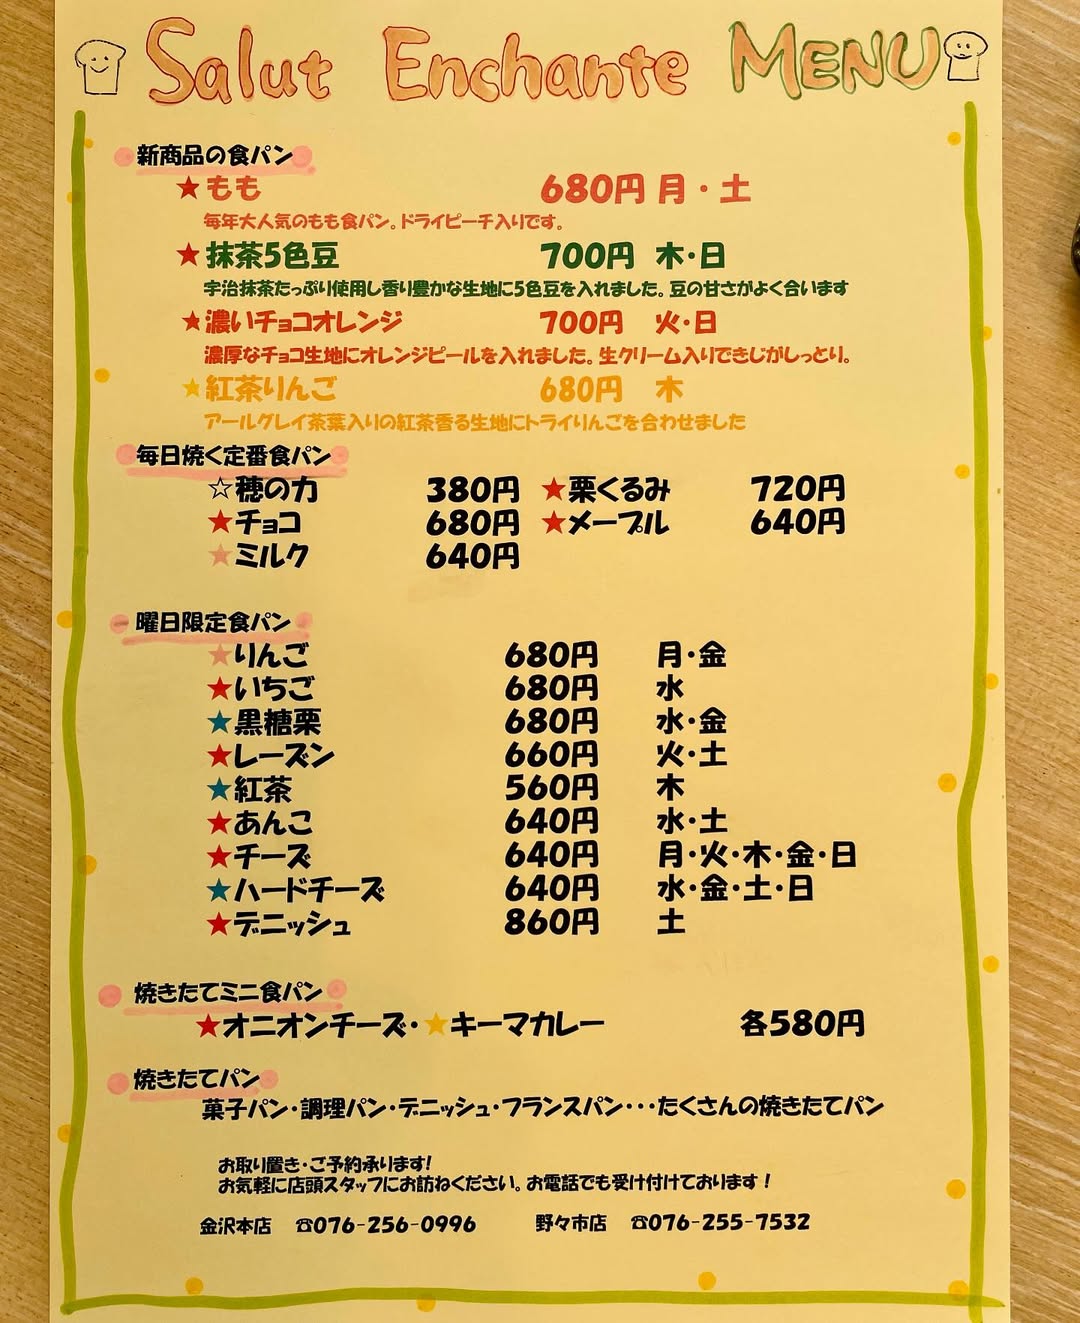 Salut Enchante MENU
新商品の食パン
★もも 680円 月・土
毎年大人気のもも食パン。ドライピーチ入りです。
★抹茶5色豆 700円 木・日
宇治抹茶たっぷり使用し香り豊かな生地に5色豆を入れました。豆の甘さがよく合います
★濃いチョコオレンジ 700円 火・日
濃厚なチョコ生地にオレンジピールを入れました。生クリーム入りできじがしっとり。
★紅茶りんご 680円 木
アールグレイ茶葉入りの紅茶香る生地にトライりんごを合わせました
毎日焼く定番食パン
☆穂の力 380円 ★栗くるみ 720円
★チョコ 680円 ★メープル 640円
★ミルク 640円
曜日限定食パン
★りんご 680円 月・金
★いちご 680円 水
★黒糖栗 680円 水・金
★レーズン 660円 火・土
★紅茶 560円 木
★あんこ 640円 水・土
★チーズ 640円 月・火・木・金・日
★ハードチーズ 640円 水・金・土・日
★デニッシュ 860円 土
焼きたてミニ食パン
★オニオンチーズ・★キーマカレー 各580円
焼きたてパン
菓子パン・調理パン・デニッシュ・フランスパン・・・たくさんの焼きたてパン
お取り置き・ご予約承ります!
お気軽に店頭スタッフにお訪ねください。お電話でも受け付けております！
金沢本店 ☎076-256-0996 野々市店 ☎076-255-7532